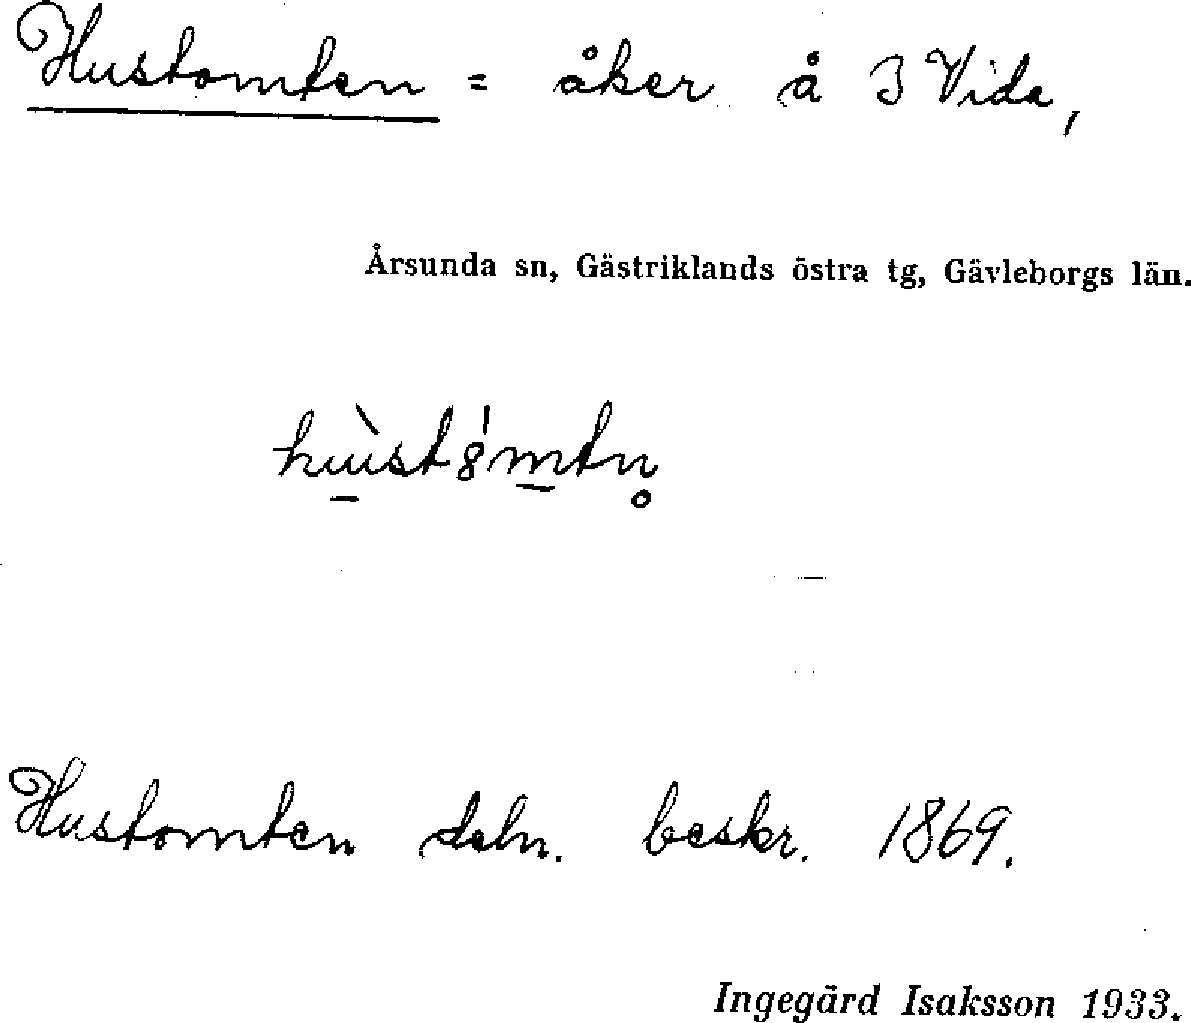 Hustomten = åker å 3 Vida,
Årsunda sn, Gästriklands östra tg, Gävleborgs län.
hùst8́mtn̥
Hustomten deln. beskr. 1869.
Ingegärd Isaksson 1933.